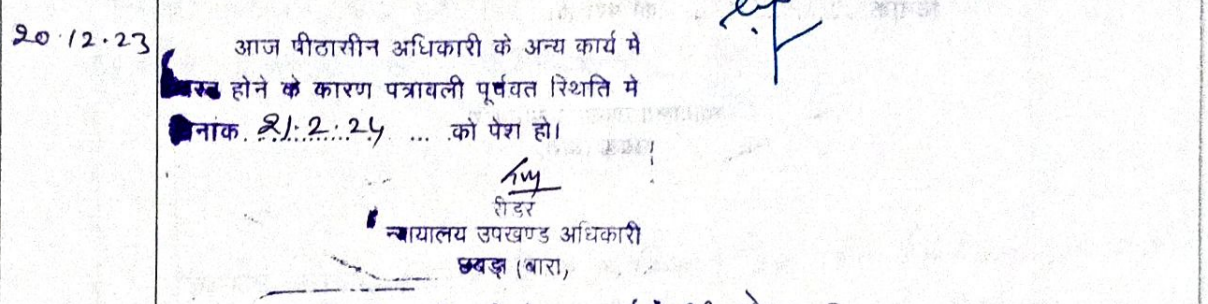 20.12.23
आज पीठासीन अधिकारी के अन्य कार्य मे
व्यस्त होने के कारण पत्रावली पूर्ववत स्थिति मे
दिनांक. 21.2.24 ... .को पेश हो।
रीडर
न्यायालय उपखण्ड अधिकारी
छबड़ा (बारा)